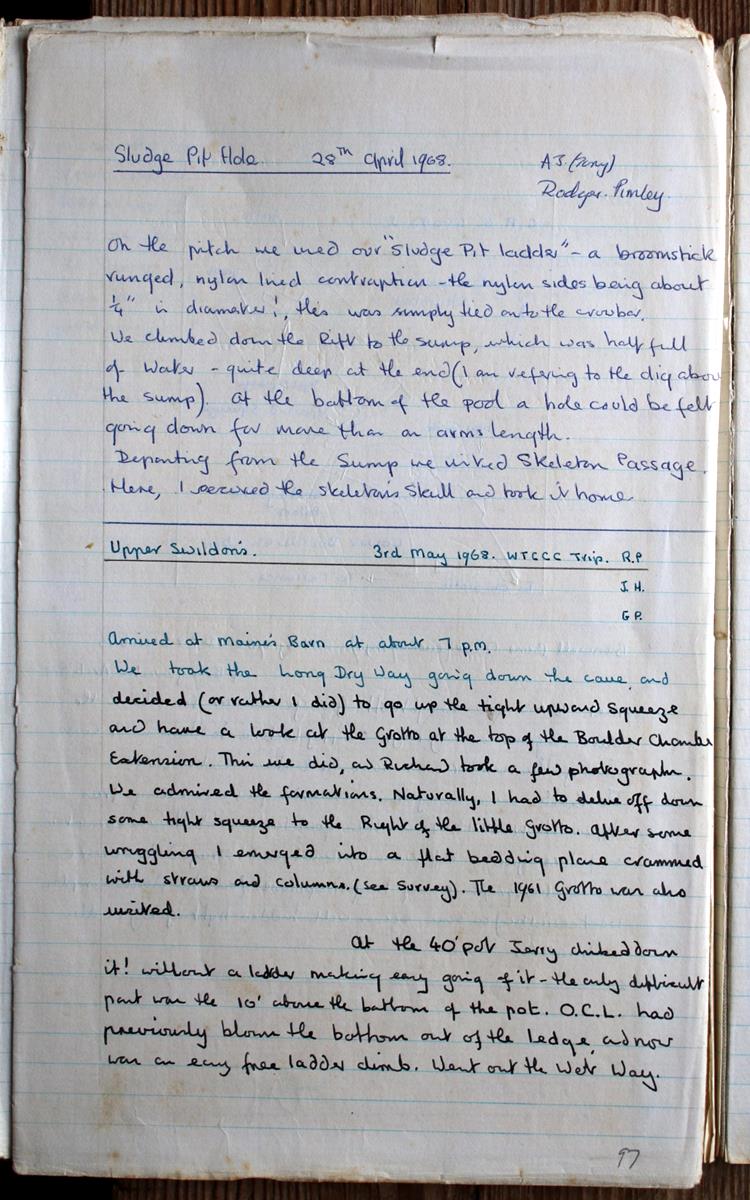 Sludge Pit Hole. 28TH April 1968. A.J. (Tony)
Rodger. Pimley
On the pitch we used our "Sludge Pit ladder" - a broomstick
runged, nylon lined contraption - the nylon sides being about
1/4" in diamater!, this was simply tied onto the crowbar.
We climbed down the Rift to the sump, which was half full
of water - quite deep at the end (I am refering to the dig abov
the sump). At the bottom of the pool a hole could be felt
going down for more than an arms length.
Departing from the Sump we visited Skeleton Passage.
Here, I secured the skeleton's skull and took it home.
Upper Swildon's. 3rd May 1968. WTCCC Trip. R.P
J.H.
G.P.
Arrived at Maine's Barn at about 7 p.m.
We took the Long Dry Way going down the cave, and
decided (or rather I did) to go up the tight upward squeeze
and have a look at the Grotto at the top of the Boulder Chamber
Extension. This we did, as Richard took a few photographs.
We admired the formations. Naturally, I had to delve off down
some tight squeeze to the Right of the little Grotto. After some
wriggling I emerged into a flat bedding plane crammed
with straws and columns. (see Survey). The 1961 Grotto was also
visited.
At the 40' pot Jerry climbed down
it! without a ladder making easy going of it - the only difficult
part was the 10' above the bottom of the pot. O.C.L. had
previously blown the bottom out of the ledge, and now
was an easy free ladder climb. Went out the Wet Way.
97